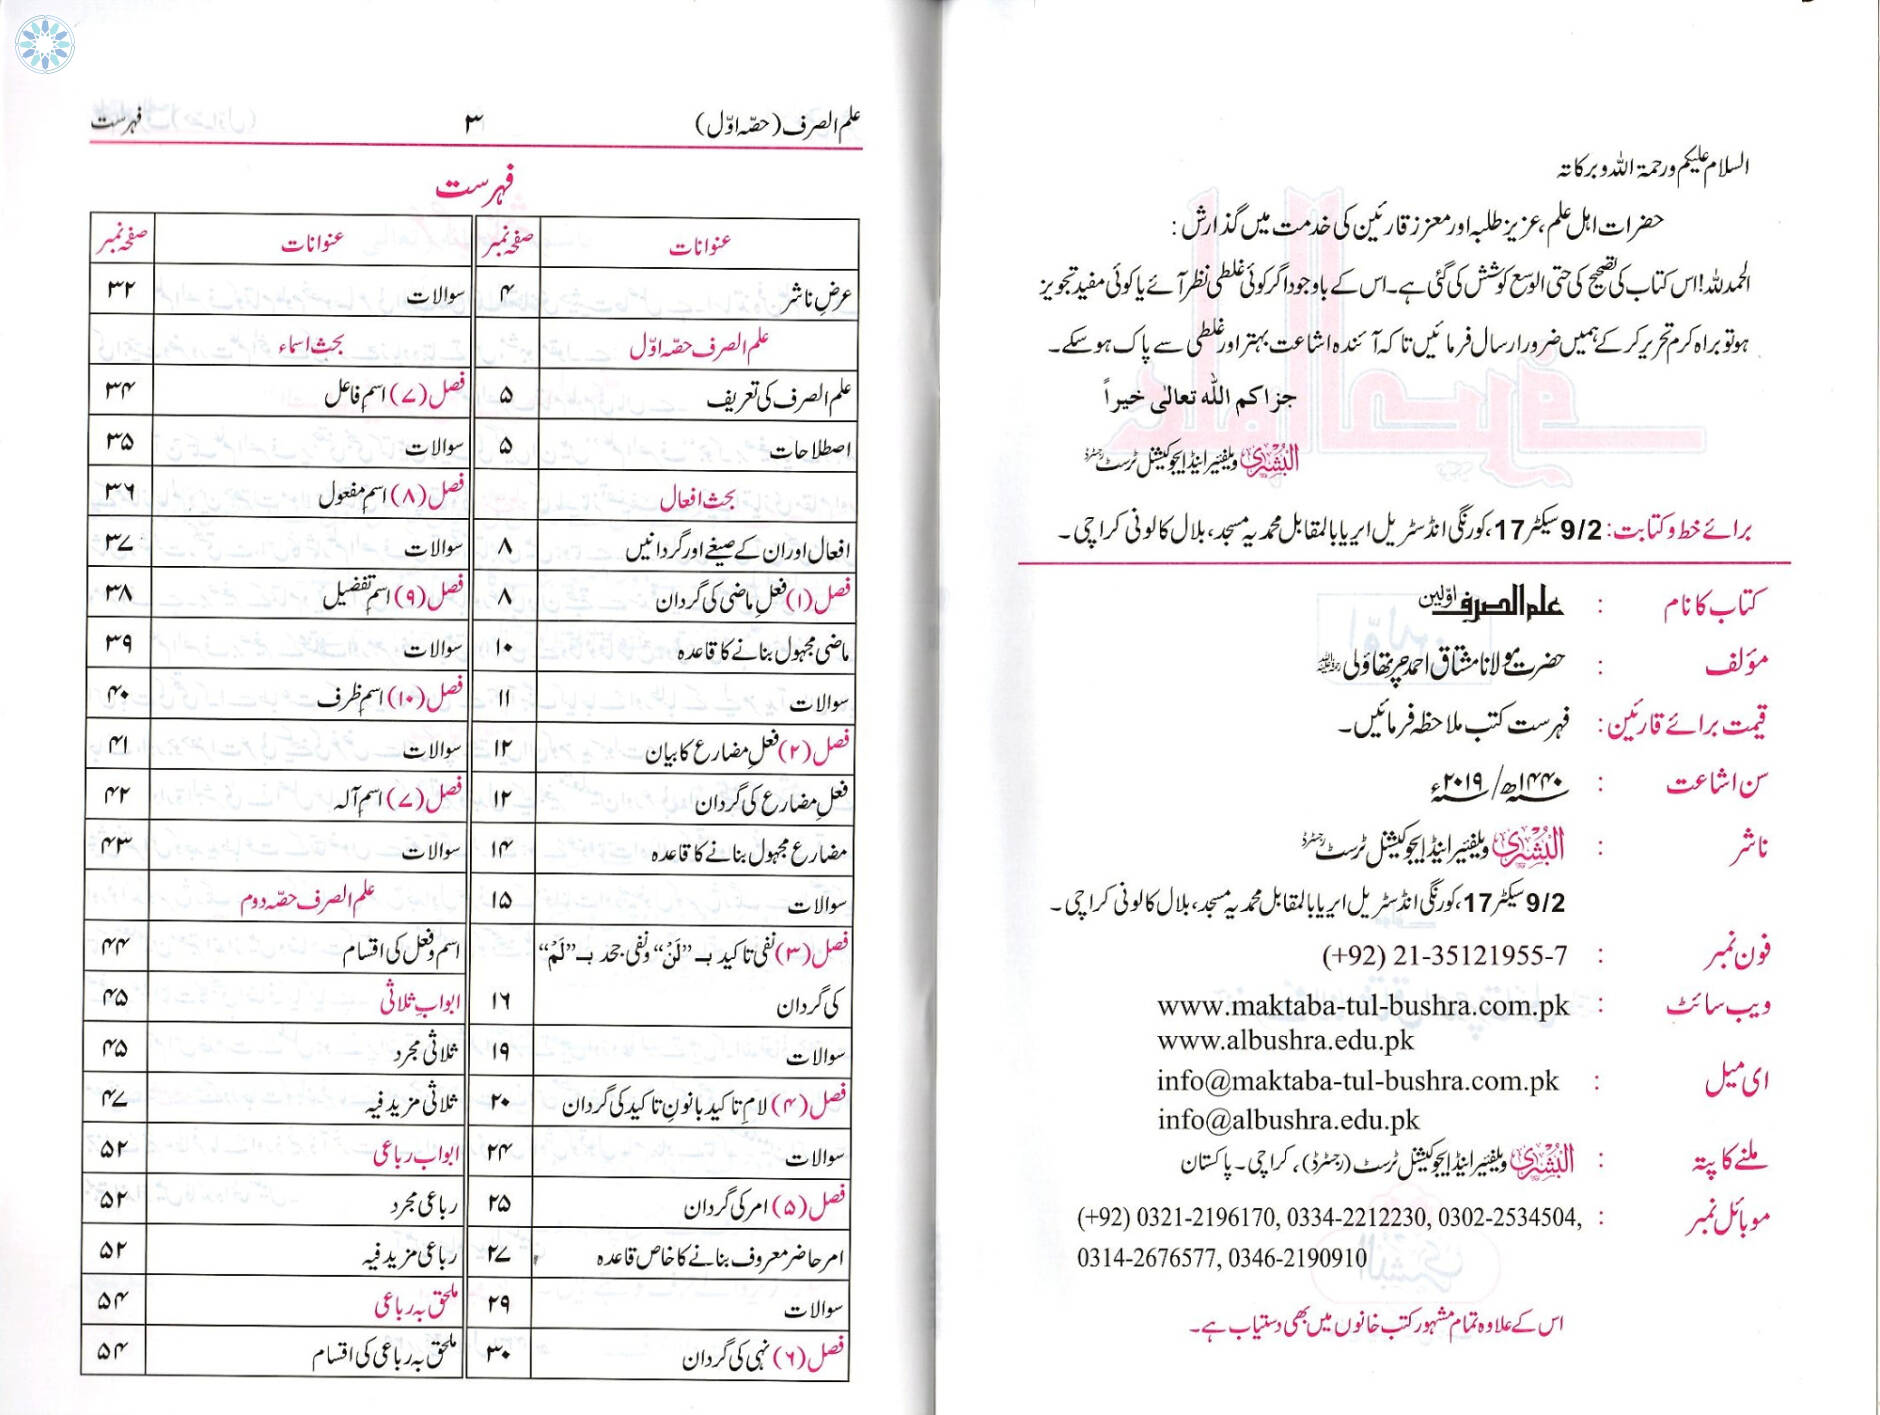 السلام علیکم ورحمۃ اللہ وبرکاتہ
حضرات اہل علم، عزیز طلبہ اور معزز قارئین کی خدمت میں گذارش:
الحمدللہ! اس کتاب کی تصحیح کی حتی الوسع کوشش کی گئی ہے۔ اس کے باوجود اگر کوئی غلطی نظر آئے یا کوئی مفید تجویز
ہو تو براہ کرم تحریر کرکے ہمیں ضرور ارسال فرمائیں تاکہ آئندہ اشاعت بہتر اور غلطی سے پاک ہوسکے۔
جزاکم اللّٰہ تعالیٰ خیراً
البُشریٰ ویلفئیر اینڈ ایجوکیشنل ٹرسٹ رجسٹرڈ
برائے خط وکتابت: 9/2 سیکٹر 17، کورنگی انڈسٹریل ایریا بالمقابل محمدیہ مسجد، بلال کالونی کراچی۔
کتاب کا نام : علم الصرف اوّلین
مؤلف : حضرت مولانا مشتاق احمد چرتھاؤلی رحمۃ اللہ علیہ
قیمت برائے قارئین: فہرست کتب ملاحظہ فرمائیں۔
سن اشاعت : ۱۴۴۰ھ/ ۲۰۱۹ء
ناشر : البُشریٰ ویلفئیر اینڈ ایجوکیشنل ٹرسٹ رجسٹرڈ
9/2 سیکٹر 17، کورنگی انڈسٹریل ایریا بالمقابل محمدیہ مسجد، بلال کالونی کراچی۔
فون نمبر : (+92) 21-35121955-7
ویب سائٹ : www.maktaba-tul-bushra.com.pk
www.albushra.edu.pk
ای میل : info@maktaba-tul-bushra.com.pk
info@albushra.edu.pk
ملنے کا پتہ : البُشریٰ ویلفئیر اینڈ ایجوکیشنل ٹرسٹ (رجسٹرڈ)، کراچی۔ پاکستان
موبائل نمبر : (+92) 0321-2196170, 0334-2212230, 0302-2534504,
0314-2676577, 0346-2190910
اس کے علاوہ تمام مشہور کتب خانوں میں بھی دستیاب ہے۔
علم الصرف (حصّہ اوّل) ۳ فہرست
فہرست
عنوانات صفحہ نمبر عنوانات صفحہ نمبر
عرضِ ناشر ۴ سوالات ۳۲
علم الصرف حصّہ اوّل بحث اسماء
علم الصرف کی تعریف ۵ فصل (۷) اسمِ فاعل ۳۴
اصطلاحات ۵ سوالات ۳۵
بحث افعال فصل (۸) اسمِ مفعول ۳۶
افعال اور ان کے صیغے اور گردانیں ۸ سوالات ۳۷
فصل (۱) فعل ماضی کی گردان ۸ فصل (۹) اسمِ تفضیل ۳۸
ماضی مجہول بنانے کا قاعدہ ۱۰ سوالات ۳۹
سوالات ۱۱ فصل (۱۰) اسمِ ظرف ۴۰
فصل (۲) فعلِ مضارع کا بیان ۱۲ سوالات ۴۱
فعلِ مضارع کی گردان ۱۲ فصل (۷) اسمِ آلہ ۴۲
مضارع مجہول بنانے کا قاعدہ ۱۴ سوالات ۴۳
سوالات ۱۵ علم الصرف حصّہ دوم
فصل (۳) نفی تاکید بـ ”لَنْ“ و نفی جحد بـ ”لَمْ“ اسم وفعل کی اقسام ۴۴
کی گردان ۱۶ ابوابِ ثلاثی ۴۵
سوالات ۱۹ ثلاثی مجرد ۴۵
فصل (۴) لامِ تاکید بانونِ تاکید کی گردان ۲۰ ثلاثی مزید فیہ ۴۷
سوالات ۲۴ ابواب رباعی ۵۲
فصل (۵) امر کی گردان ۲۵ رباعی مجرد ۵۲
امر حاضر معروف بنانے کا خاص قاعدہ ۲۷ رباعی مزید فیہ ۵۲
سوالات ۲۹ ملحق بہ رباعی ۵۴
فصل (۶) نہی کی گردان ۳۰ ملحق بہ رباعی کی اقسام ۵۴